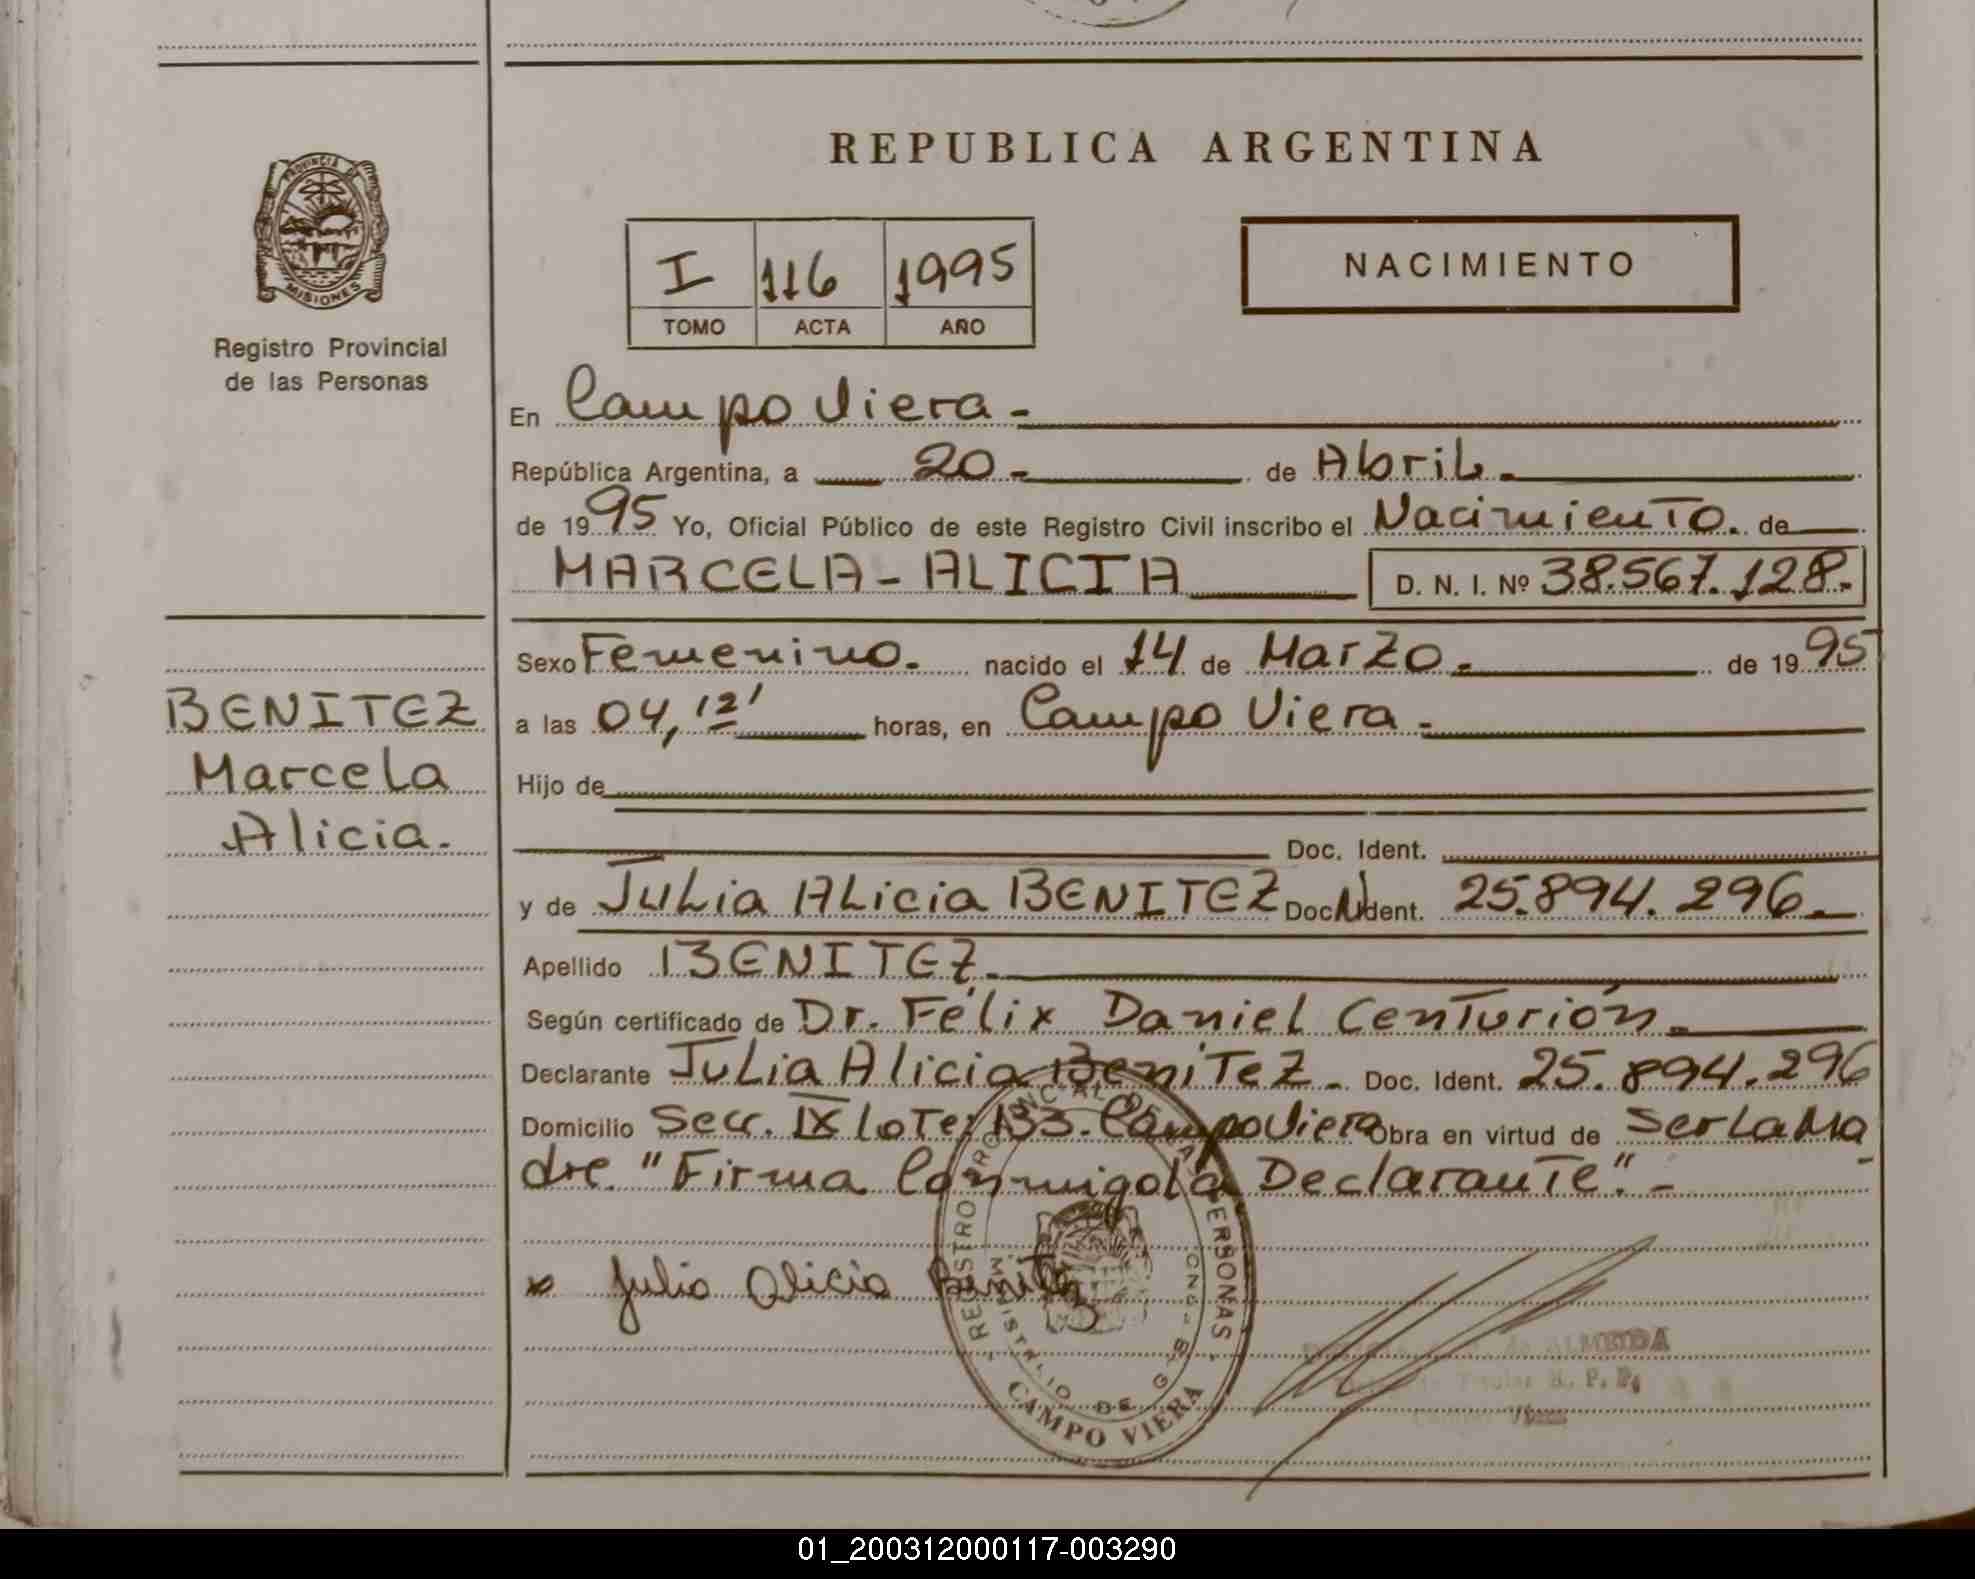 REPUBLICA ARGENTINA
PROVINCIA DE
MISIONES
Registro Provincial
de las Personas
I 116 1995
TOMO ACTA AÑO
NACIMIENTO
En Campo Viera -
República Argentina, a 20 - de Abril.
de 1995 Yo, Oficial Público de este Registro Civil inscribo el Nacimiento. de
MARCELA - ALICIA D. N. I. Nº 38.567.128.-
Sexo Femenino. nacido el 14 de Marzo. de 1995
a las 04,12' horas, en Campo Viera.
Hijo de
Doc. Ident.
y de Julia Alicia BENITEZ Doc. Ident. 25.894.296.
Apellido BENITEZ.
Según certificado de Dr. Félix Daniel Centurión.
Declarante Julia Alicia Benitez - Doc. Ident. 25.894.296
Domicilio Secc. IX lote 133. Campo Viera Obra en virtud de Ser La Ma
dre. "Firma Conmigo la Declarante".-
BENITEZ
Marcela
Alicia.
x Julia Alicia Benitez
REGISTRO PROVINCIAL DE LAS PERSONAS
MINISTERIO DE G
CAMPO VIERA
de ALMEIDA
R. P. P.
Campo Viera
01_200312000117-003290